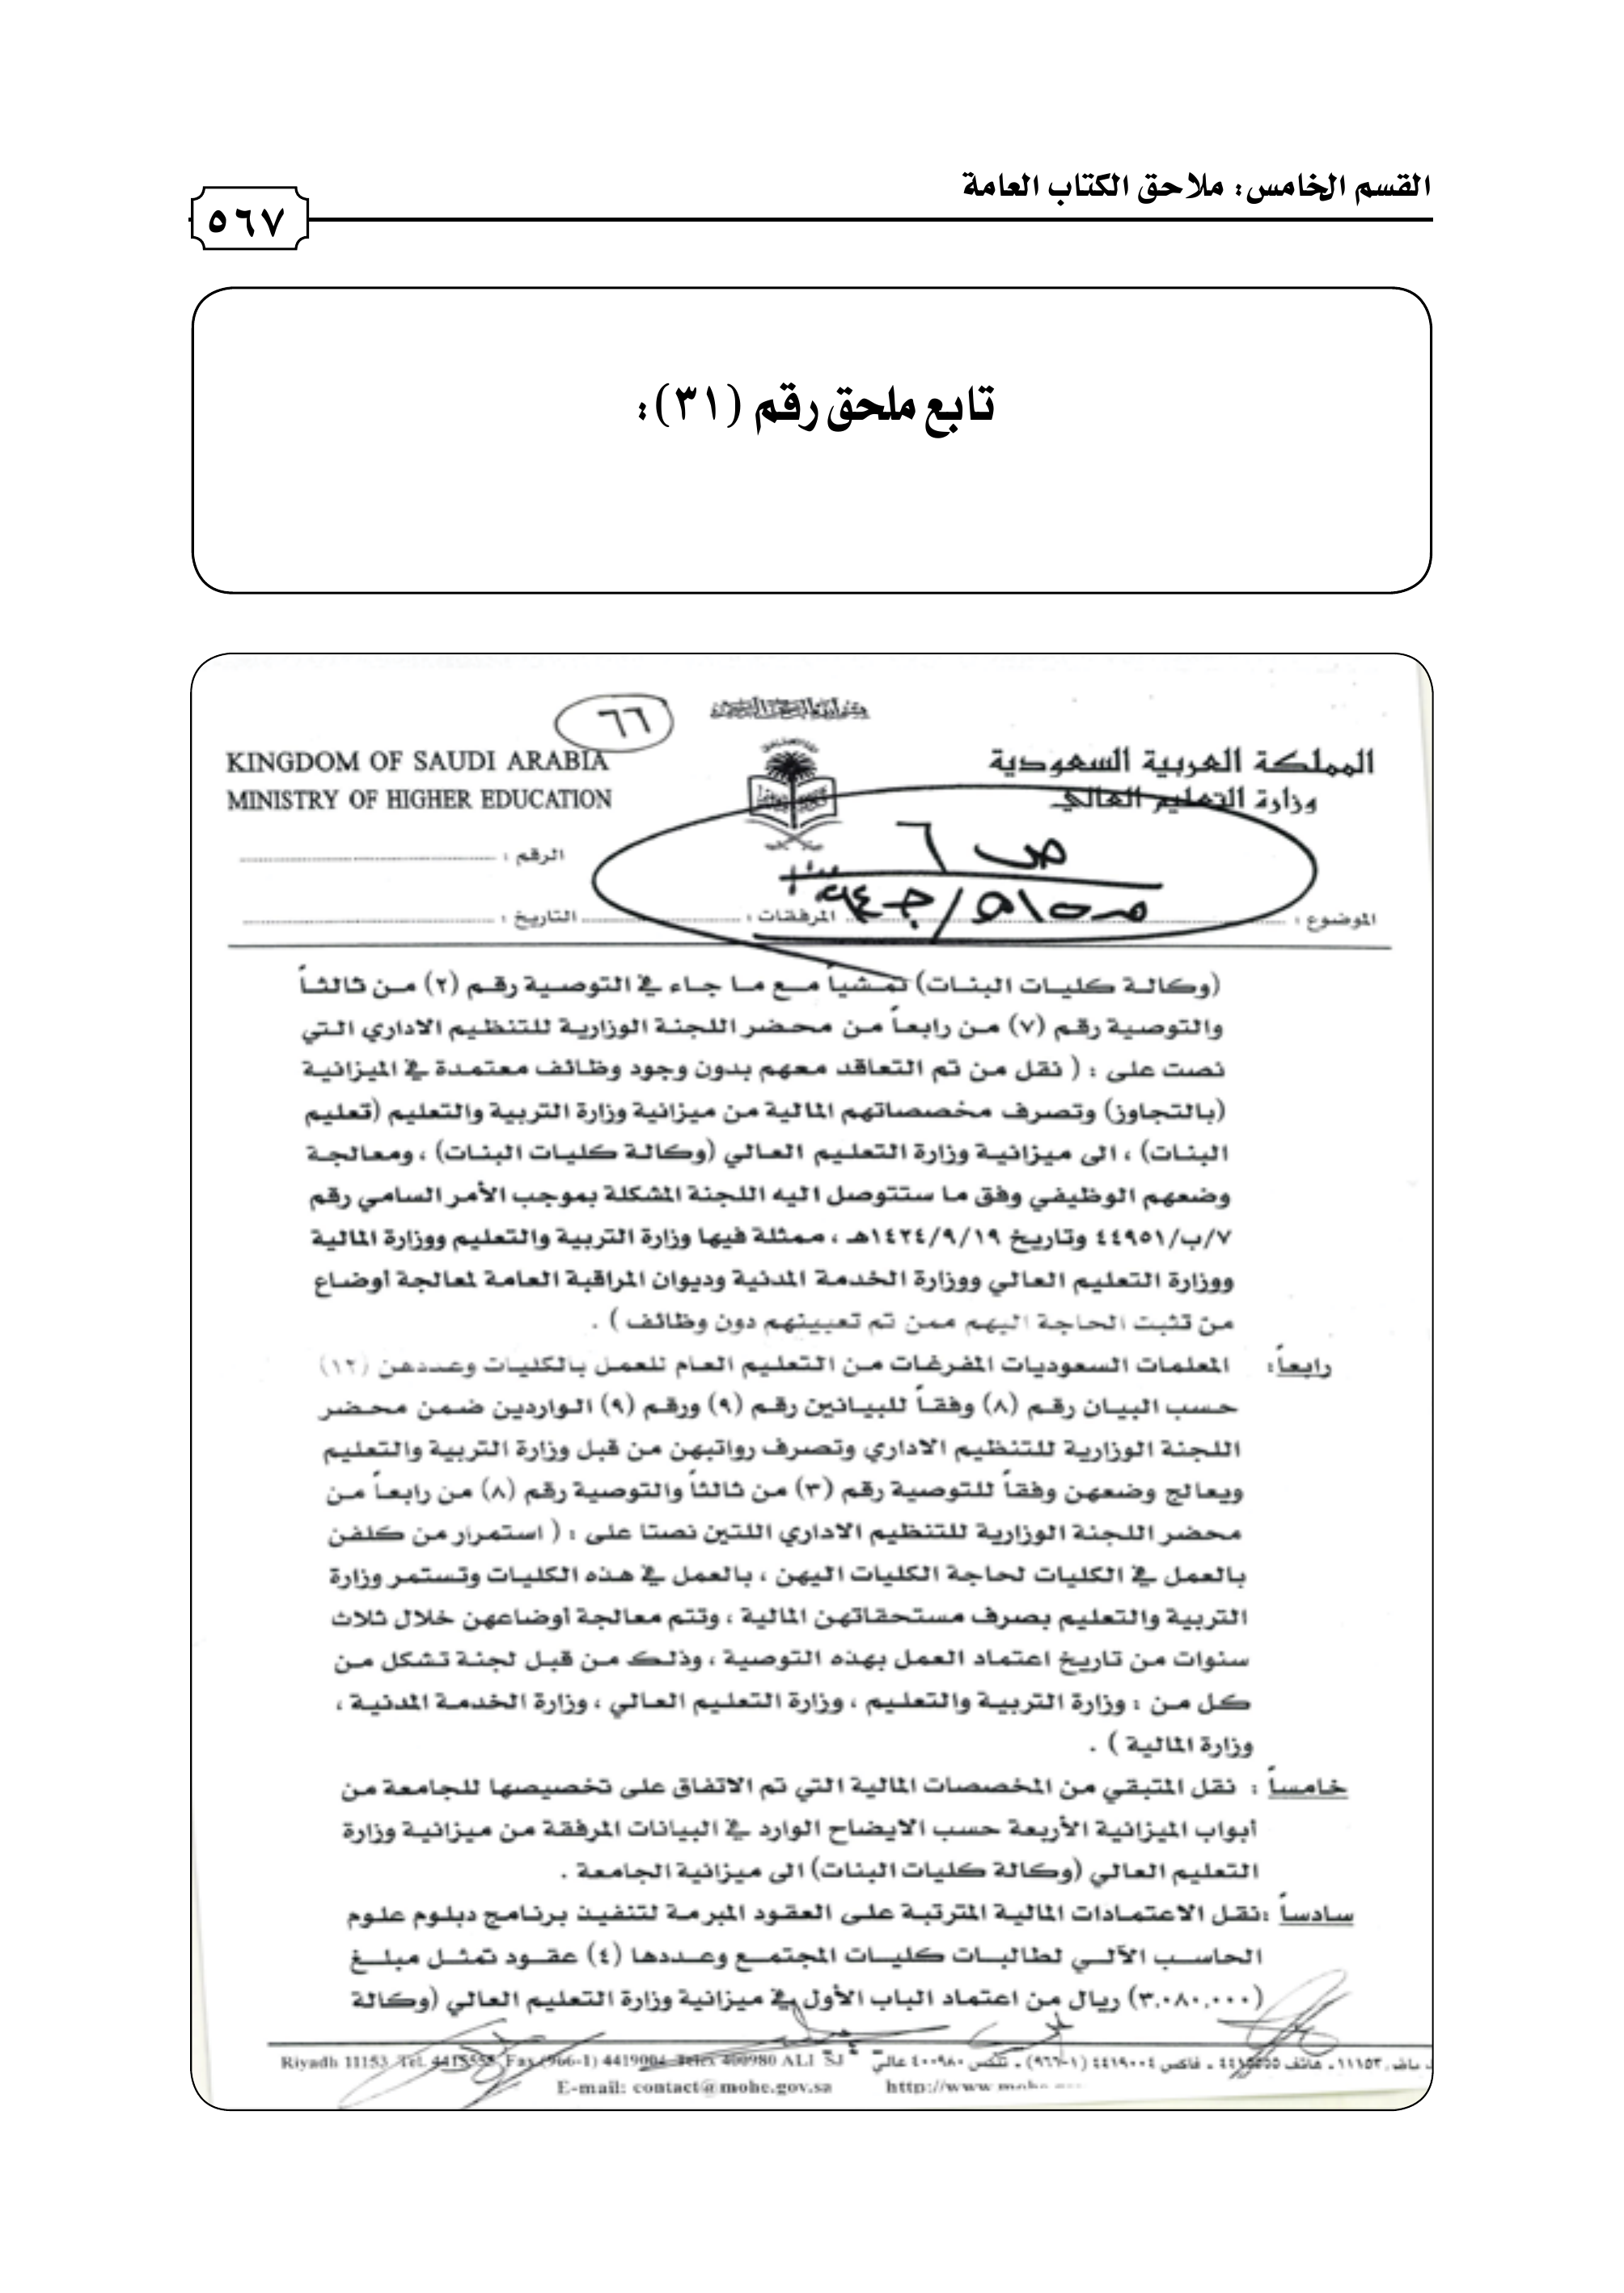 القسم الخامس: ملاحق الكتاب العامة
٥٦٧
تابع ملحق رقم (٣١):
٦٦
KINGDOM OF SAUDI ARABIA
MINISTRY OF HIGHER EDUCATION
المملكة العربية السعودية
وزارة التعليم العالي
الرقم :
ص ٦
الموضوع : المرفقات : التاريخ :
(وكالة كليات البنات) تمشياً مع ما جاء في التوصية رقم (٢) من ثالثاً
والتوصية رقم (٧) من رابعاً من محضر اللجنة الوزارية للتنظيم الاداري التي
نصت على : ( نقل من تم التعاقد معهم بدون وجود وظائف معتمدة في الميزانية
(بالتجاوز) وتصرف مخصصاتهم المالية من ميزانية وزارة التربية والتعليم (تعليم
البنات) ، الى ميزانية وزارة التعليم العالي (وكالة كليات البنات) ، ومعالجة
وضعهم الوظيفي وفق ما ستتوصل اليه اللجنة المشكلة بموجب الأمر السامي رقم
٧/ب/٤٤٩٥١ وتاريخ ١٤٢٤/٩/١٩هـ ، ممثلة فيها وزارة التربية والتعليم ووزارة المالية
ووزارة التعليم العالي ووزارة الخدمة المدنية وديوان المراقبة العامة لمعالجة أوضاع
من تثبت الحاجة اليهم ممن تم تعيينهم دون وظائف ) .
رابعاً: المعلمات السعوديات المفرغات من التعليم العام للعمل بالكليات وعددهن (١٢)
حسب البيان رقم (٨) وفقاً للبيانين رقم (٩) ورقم (٩) الواردين ضمن محضر
اللجنة الوزارية للتنظيم الاداري وتصرف رواتبهن من قبل وزارة التربية والتعليم
ويعالج وضعهن وفقاً للتوصية رقم (٣) من ثالثاً والتوصية رقم (٨) من رابعاً من
محضر اللجنة الوزارية للتنظيم الاداري اللتين نصتا على : ( استمرار من كلفن
بالعمل في الكليات لحاجة الكليات اليهن ، بالعمل في هذه الكليات وتستمر وزارة
التربية والتعليم بصرف مستحقاتهن المالية ، وتتم معالجة أوضاعهن خلال ثلاث
سنوات من تاريخ اعتماد العمل بهذه التوصية ، وذلك من قبل لجنة تشكل من
كل من : وزارة التربية والتعليم ، وزارة التعليم العالي ، وزارة الخدمة المدنية ،
وزارة المالية ) .
خامساً : نقل المتبقي من المخصصات المالية التي تم الاتفاق على تخصيصها للجامعة من
أبواب الميزانية الأربعة حسب الايضاح الوارد في البيانات المرفقة من ميزانية وزارة
التعليم العالي (وكالة كليات البنات) الى ميزانية الجامعة .
سادساً :نقل الاعتمادات المالية المترتبة على العقود المبرمة لتنفيذ برنامج دبلوم علوم
الحاسب الآلي لطالبات كليات المجتمع وعددها (٤) عقود تمثل مبلغ
(٣،٠٨٠،٠٠٠) ريال من اعتماد الباب الأول في ميزانية وزارة التعليم العالي (وكالة
Riyadh 11153 Tel. 4415555 Fax (966-1) 4419004 Telex 400980 ALI SJ
١١١٥٣ ـ هاتف ٤٤١٥٥٥٥ ـ فاكس ٤٤١٩٠٠٤ (١-٩٦٦) ـ تلكس ٤٠٠٩٨٠ عالي
E-mail: contact@mohe.gov.sa http://www.mohe